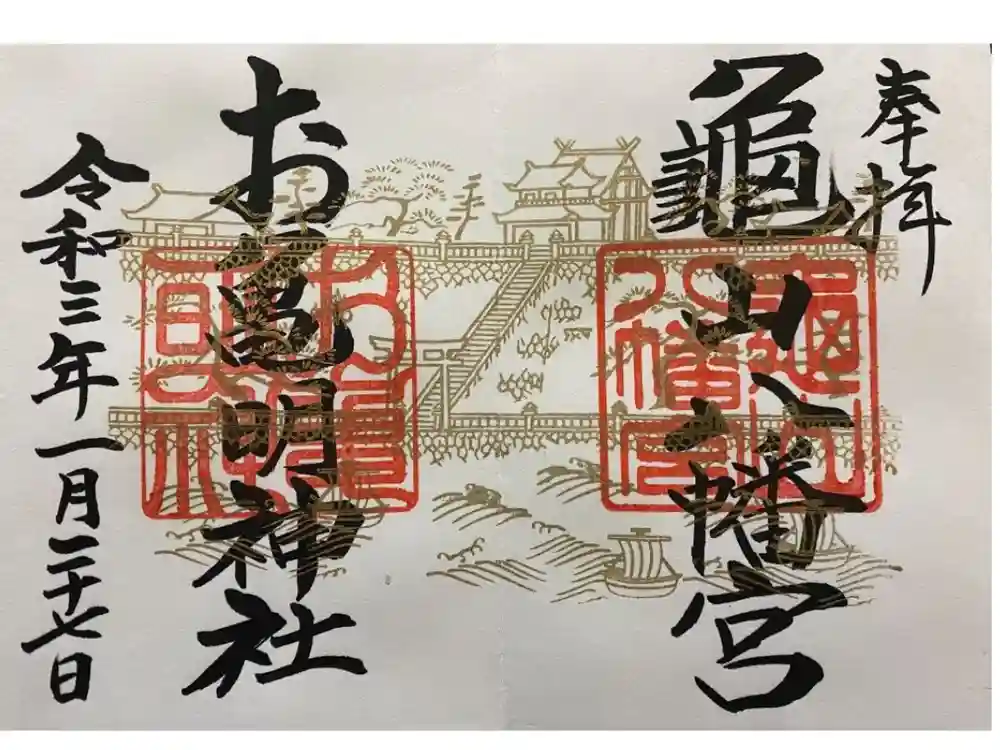 奉拝
龜山八幡宮
お亀明神社
令和三年一月二十七日
龜山
八幡宮
お龜
明神社